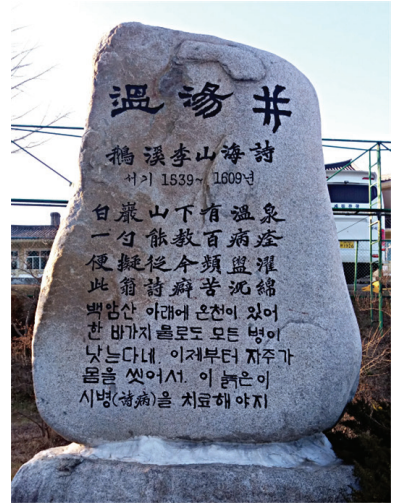 溫湯井
鵝溪李山海詩
서기 1539~1609년
白巖山下有溫泉
一勺能教百病痊
便擬從今頻盥濯
此翁詩癖苦沉綿
백암산 아래에 온천이 있어
한 바가지 물로도 모든 병이
낫는다네. 이제부터 자주가
몸을 씻어서. 이 늙은이
시병(詩病)을 치료해야지